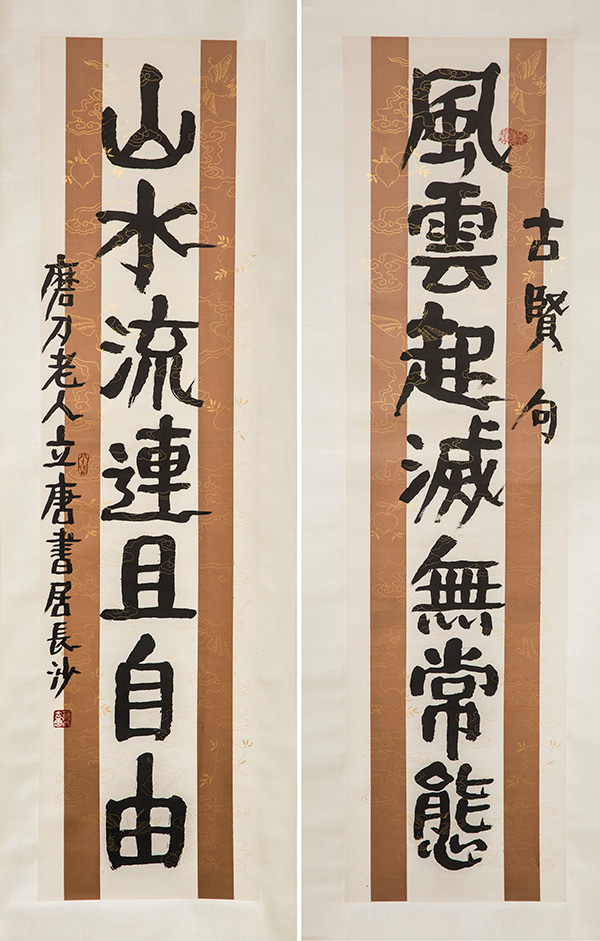 古賢句
風雲起滅無常態
山水流連且自由
磨刀老人立唐書居長沙